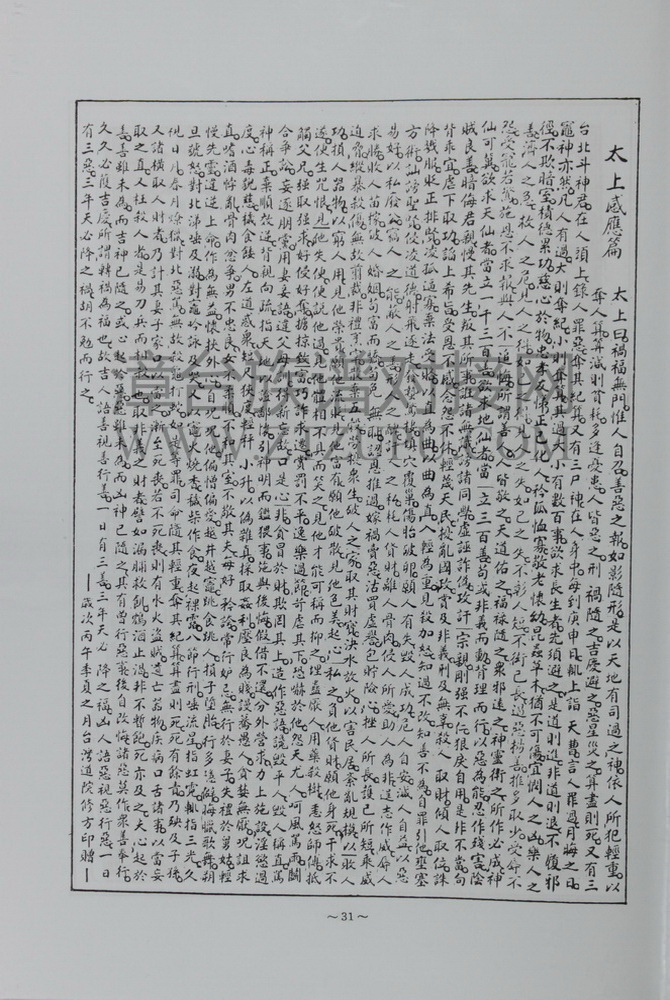 太上感應篇
太上曰禍福無門惟人自召善惡之報如影隨形是以天地有司過之神依人所犯輕重以
奪人算算減則貧耗多逢憂患人皆惡之刑禍隨之吉慶避之惡星災之算盡則死又有三
台北斗神君在人頭上錄人罪惡奪其紀算又有三尸神在人身中每到庚申日輒上詣天曹言人罪過月晦之日
竈神亦然凡人有過大則奪紀小則奪算其過大小有數百事欲求長生者先須避之是道則進非道則退不履邪
徑不欺暗室積德累功慈心於物忠孝友悌正己化人矜孤恤寡敬老懷幼昆蟲草木猶不可傷宜憫人之凶樂人之
善濟人之急救人之危見人之得如己之得見人之失如己之失不彰人短不衒己長遏惡揚善推多取少受辱不
怨受寵若驚施恩不求報與人不追悔所謂善人人皆敬之天道佑之福祿隨之衆邪遠之神靈衛之所作必成神
仙可冀欲求天仙者當立一千三百善欲求地仙者當立三百善苟或非義而動背理而行以惡為能忍作殘害陰
賊良善暗侮君親慢其先生叛其所事誑諸無識謗諸同學虛誣詐偽攻訐宗親剛强不仁狠戾自用是非不當向
背乖宜虐下取功諂上希旨受恩不感念怨不休輕蔑天民擾亂國政賞及非義刑及無辜殺人取財傾人取位誅
降戮服貶正排賢凌孤逼寡棄法受賂以直為曲以曲為直入輕為重見殺加怒知過不改知善不為自罪引他壅塞
方術訕謗聖賢侵凌道德射飛逐走發蟄驚棲填穴覆巢傷胎破卵願人有失毀人成功危人自安減人自益以惡
易好以私廢公竊人之能蔽人之善形人之醜訐人之私耗人貨財離人骨肉侵人所愛助人為非逞志作威辱人
求勝敗人苗稼破人婚姻苟富而驕苟免無恥認恩推過嫁禍賣惡沽買虛譽包貯險心挫人所長護己所短乘威
迫脅縱暴殺傷無故剪裁非禮烹宰散棄五穀勞擾衆生破人之家取其財寶決水放火以害民居紊亂規模以敗人
功損人器物以窮人用見他榮貴願他流貶見他富有願他破散見他色美起心私之負他貨財願他身死干求不
遂便生咒恨見他失便便說他過見他體相不具而笑之見他才能可稱而抑之埋蠱厭人用藥殺樹恚怒師傅抵
觸父兄强取强求好侵好奪擄掠致富巧詐求遷賞罰不平逸樂過節苛虐其下恐嚇於他怨天尤人呵風罵雨鬬
合爭訟妄逐朋黨用妻妾語違父母訓得新忘故口是心非貪冒於財欺罔其上造作惡語讒毀平人毀人稱直罵
神稱正棄順效逆背親向疏指天地以證鄙懷引神明而鑑猥事施與後悔假借不還分外營求力上施設淫慾過
度心毒貌慈穢食餧人左道惑衆短尺狹度輕秤小升以偽雜真採取姦利壓良為賤謾驀愚人貪婪無厭咒詛求
直嗜酒悖亂骨肉忿爭男不忠良女不柔順不和其室不敬其夫每好矜誇常行妒忌無行於妻子失禮於舅姑輕
慢先靈違逆上命作為無益懷挾外心自咒咒他偏憎偏愛越井越竈跳食跳人損子墮胎行多隱僻晦臘歌舞朔
旦號怒對北涕唾及溺對竈吟詠及哭又以竈火燒香穢柴作食夜起裸露八節行刑唾流星指虹霓輒指三光久
視日月春月燎獵對北惡罵無故殺龜打蛇如是等罪司命隨其輕重奪其紀算算盡則死死有餘責乃殃及子孫
又諸橫取人財者乃計其妻子家口以當之漸至死喪若不死喪則有水火盜賊遺亡器物疾病口舌諸事以當妄
取之直又枉殺人者是易刀兵而相殺也取非義之財者譬如漏脯救飢鴆酒止渴非不暫飽死亦及之夫心起於
善善雖未為而吉神已隨之或心起於惡惡雖未為而凶神已隨之其有曾行惡事後自改悔諸惡莫作衆善奉行
久久必獲吉慶所謂轉禍為福也故吉人語善視善行善一日有三善三年天必降之福凶人語惡視惡行惡一日
有三惡三年天必降之禍胡不勉而行之
——歲次丙午季夏之月台灣道院修方印贈——
~31~